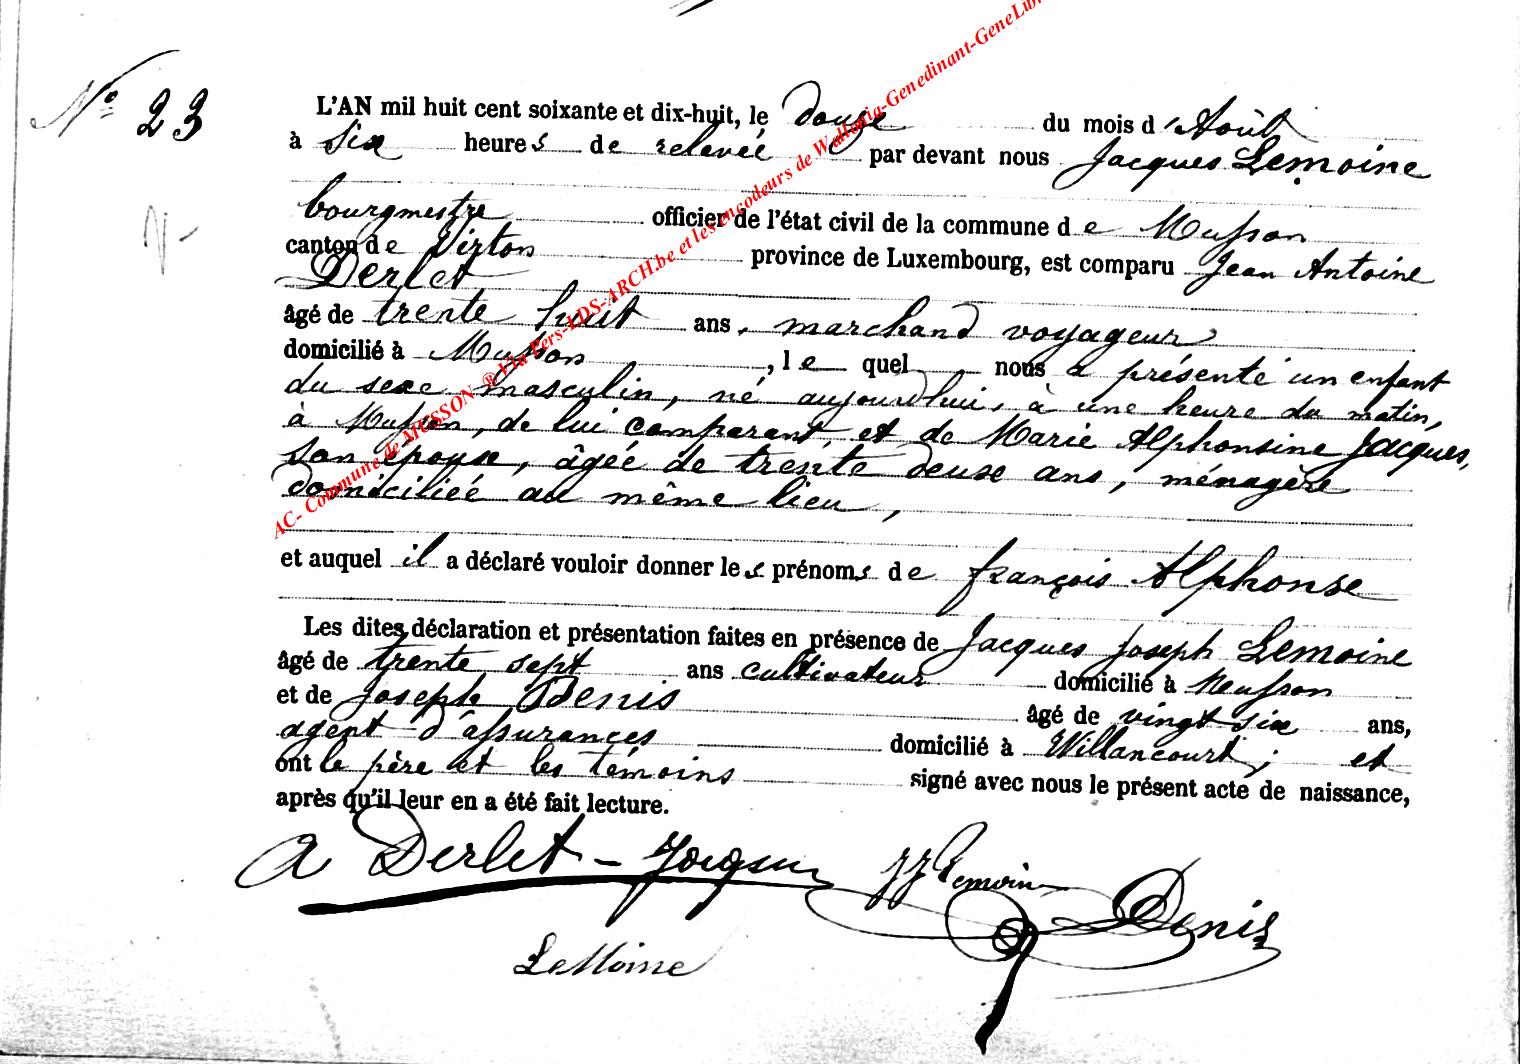 N° 23
L'AN mil huit cent soixante et dix-huit, le douze du mois d'Août
à six heures de relevée par devant nous Jacques Lemoine
bourgmestre officier de l'état civil de la commune de Musson
canton de Virton province de Luxembourg, est comparu Jean Antoine
Derlet
âgé de trente huit ans, marchand voyageur
domicilié à Musson, lequel nous a présenté un enfant
du sexe masculin, né aujourd'hui, à une heure du matin,
à Musson, de lui comparant, et de Marie Alphonsine Jacques,
son épouse, âgée de trente deux ans, ménagère
domiciliée au même lieu,
et auquel il a déclaré vouloir donner les prénoms de françois Alphonse
Les dites déclaration et présentation faites en présence de Jacques Joseph Lemoine
âgé de trente sept ans cultivateur domicilié à Musson
et de Joseph Denis âgé de vingt six ans,
agent d'assurances domicilié à Willancourt; et
ont le père et les témoins signé avec nous le présent acte de naissance,
après qu'il leur en a été fait lecture.
A Derlet - Jacques JJ Lemoine Denis
Lemoine
AC- Commune de MUSSON ® Via Pers-LDS-ARCH.be et les encodeurs de Wallonia-Genedinant-GeneLib